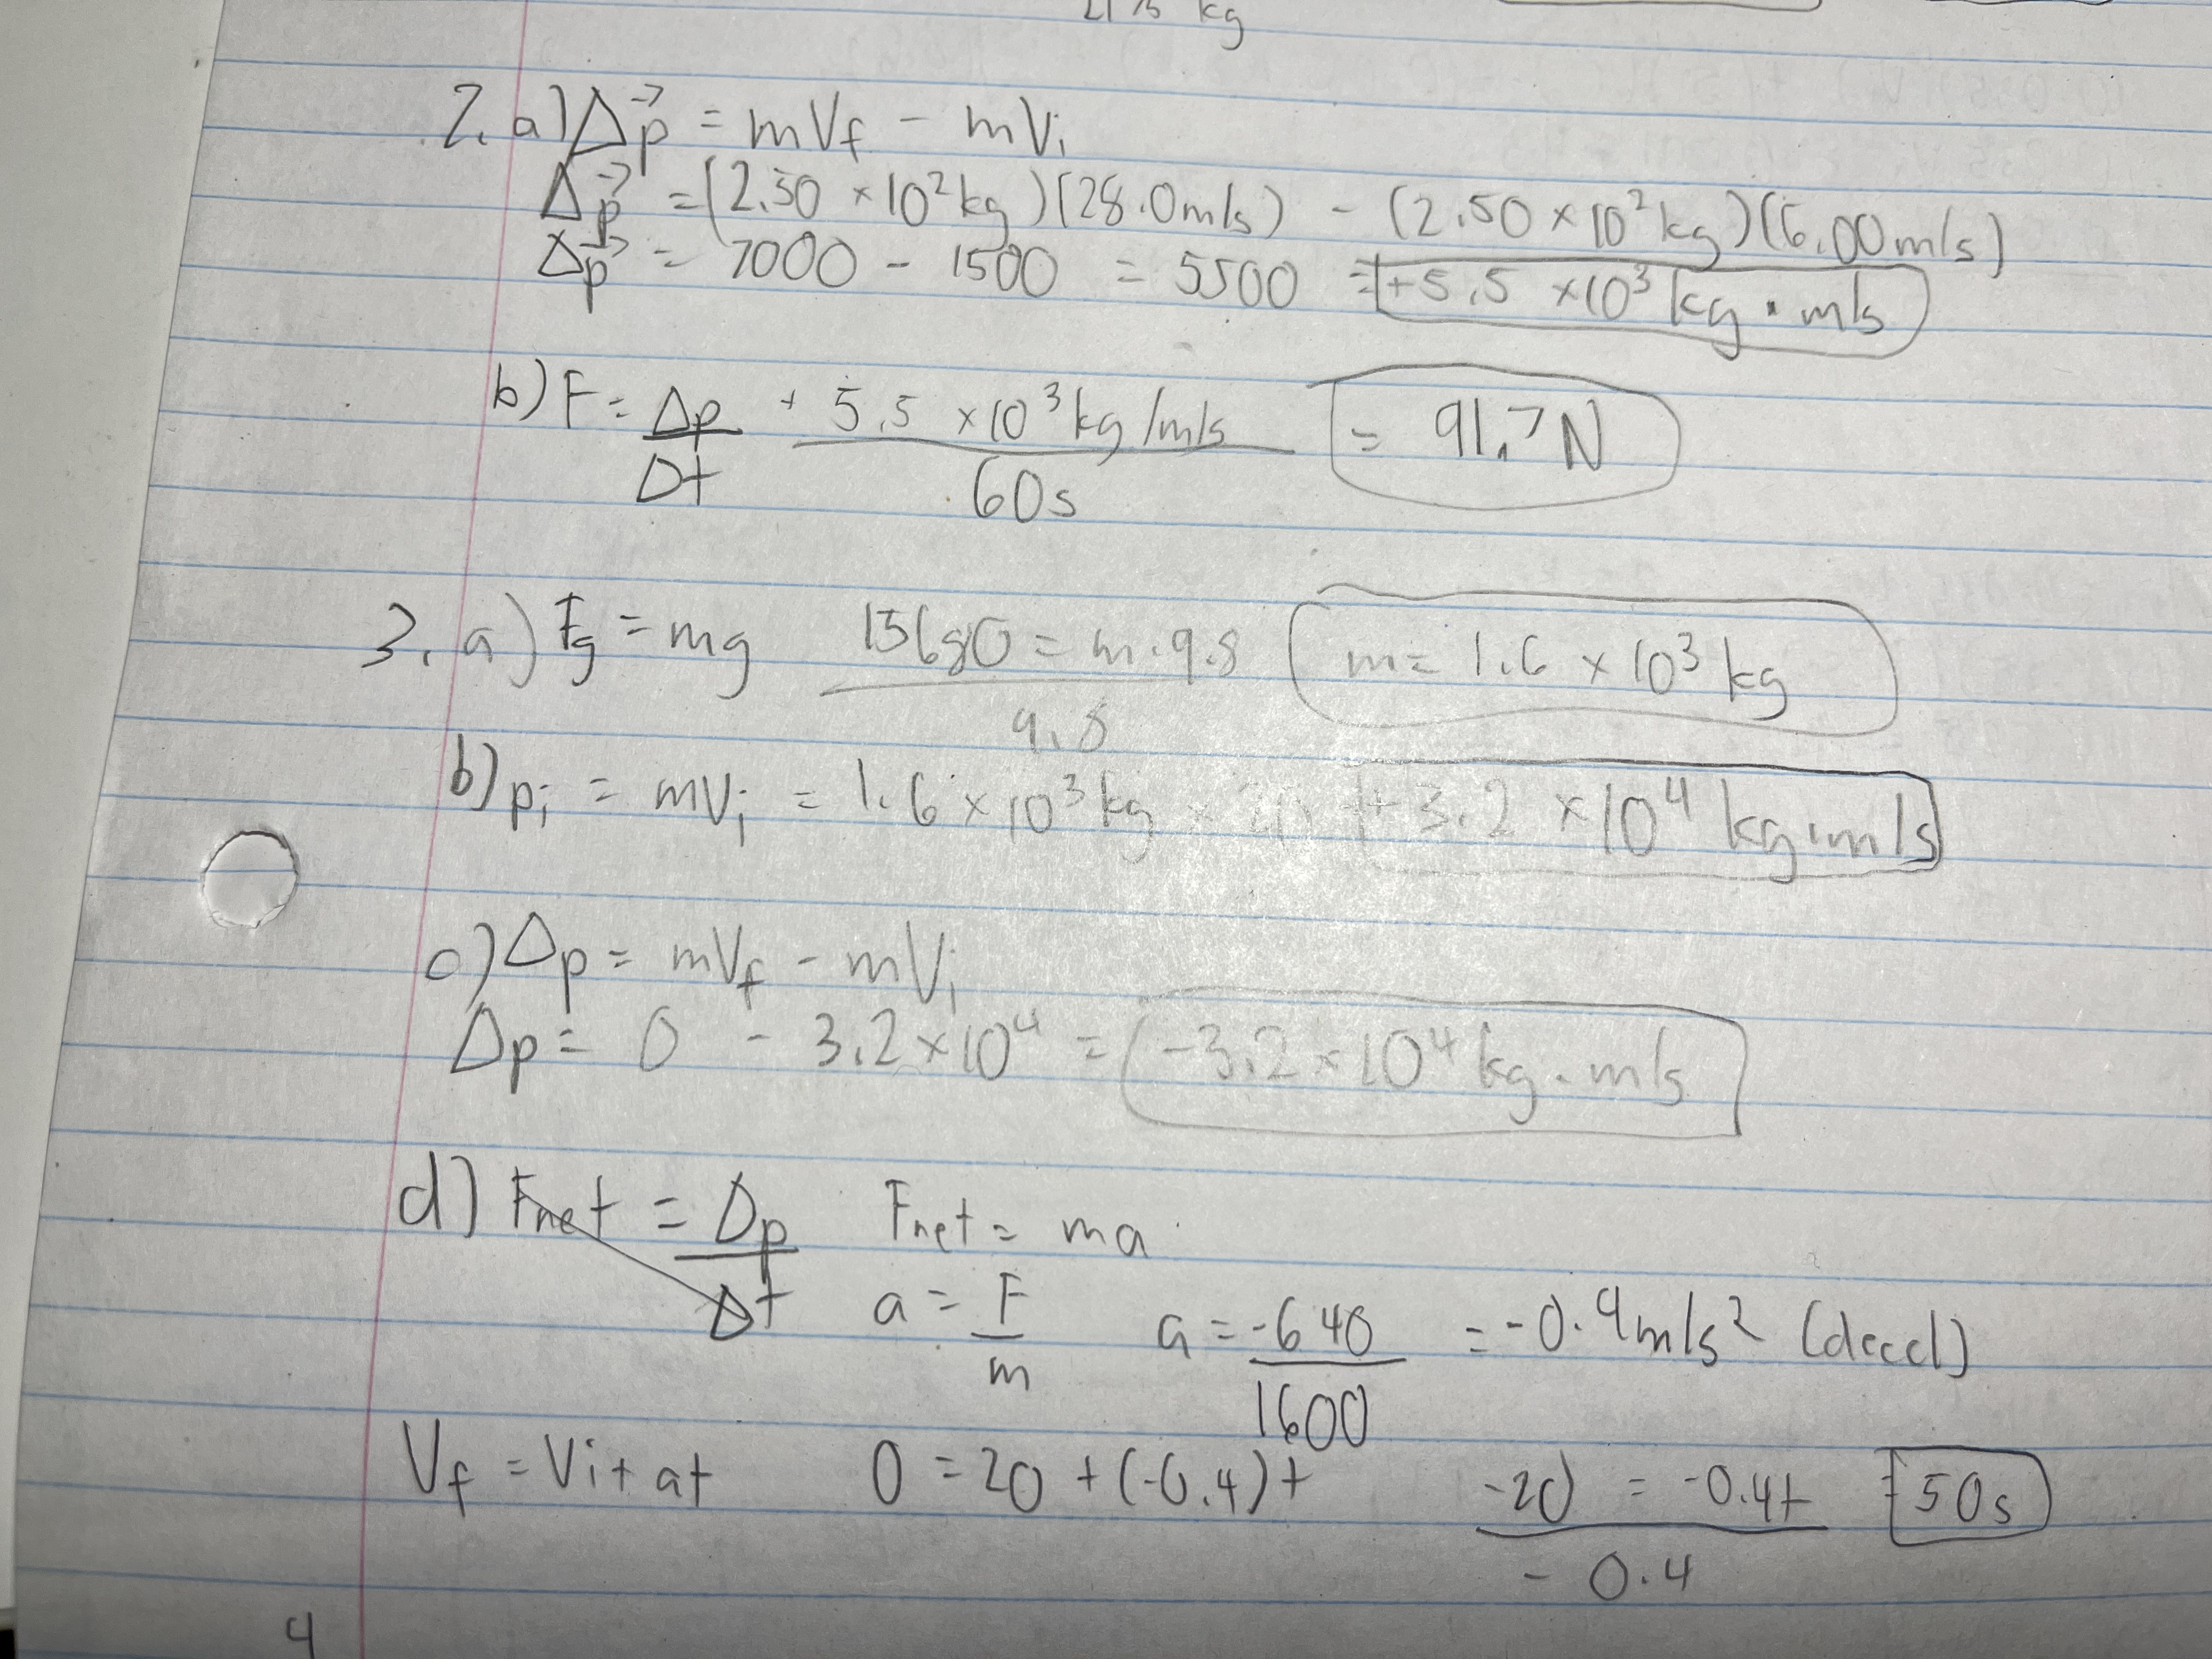 kg
2. a) Δp⃗ = mVf - mVi
Δp⃗ = (2.50 × 10² kg)(28.0 m/s) - (2.50 × 10² kg)(6.00 m/s)
Δp⃗ = 7000 - 1500 = 5500 = +5.5 × 10³ kg · m/s
b) F = Δp/Δt + 5.5 × 10³ kg/m/s / 60s = 91.7 N
3. a) Fg = mg 15680 = m · 9.8 m = 1.6 × 10³ kg
9.8
b) pi = mVi = 1.6 × 10³ kg × 20 + 3.2 × 10⁴ kg · m/s
c) Δp = mVf - mVi
Δp = 0 - 3.2 × 10⁴ = -3.2 × 10⁴ kg · m/s
d) Fnet = Δp/Δt Fnet = ma
a = F/m a = -640/1600 = -0.4 m/s² (decel)
Vf = Vi + at 0 = 20 + (-0.4)t -20 = -0.4t = 50s
-0.4
4